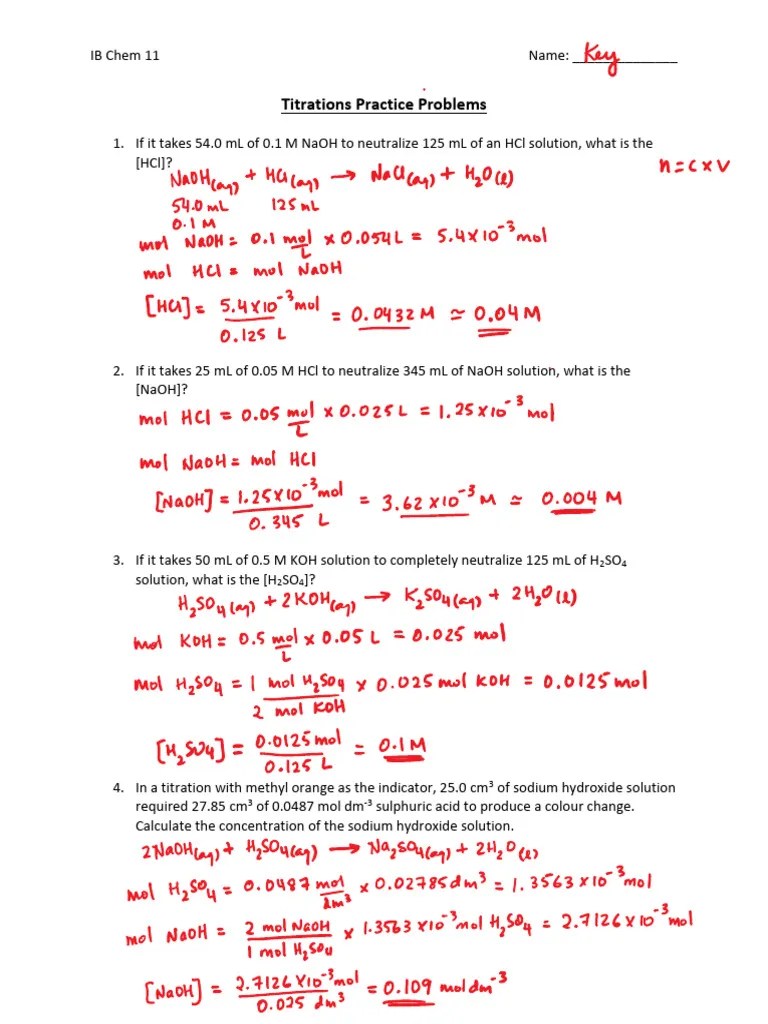 IB Chem 11 Name: Key
Titrations Practice Problems
1. If it takes 54.0 mL of 0.1 M NaOH to neutralize 125 mL of an HCl solution, what is the
[HCl]?
n = c x V
NaOH(aq) + HCl(aq) → NaCl(aq) + H₂O(l)
54.0 mL 125 mL
0.1 M
mol NaOH = 0.1 mol/L x 0.054 L = 5.4 x 10⁻³ mol
mol HCl = mol NaOH
[HCl] = 5.4 x 10⁻³ mol / 0.125 L = 0.0432 M ≃ 0.04 M
2. If it takes 25 mL of 0.05 M HCl to neutralize 345 mL of NaOH solution, what is the
[NaOH]?
mol HCl = 0.05 mol/L x 0.025 L = 1.25 x 10⁻³ mol
mol NaOH = mol HCl
[NaOH] = 1.25 x 10⁻³ mol / 0.345 L = 3.62 x 10⁻³ M ≃ 0.004 M
3. If it takes 50 mL of 0.5 M KOH solution to completely neutralize 125 mL of H₂SO₄
solution, what is the [H₂SO₄]?
H₂SO₄(aq) + 2KOH(aq) → K₂SO₄(aq) + 2H₂O(l)
mol KOH = 0.5 mol/L x 0.05 L = 0.025 mol
mol H₂SO₄ = 1 mol H₂SO₄ / 2 mol KOH x 0.025 mol KOH = 0.0125 mol
[H₂SO₄] = 0.0125 mol / 0.125 L = 0.1 M
4. In a titration with methyl orange as the indicator, 25.0 cm³ of sodium hydroxide solution
required 27.85 cm³ of 0.0487 mol dm⁻³ sulphuric acid to produce a colour change.
Calculate the concentration of the sodium hydroxide solution.
2NaOH(aq) + H₂SO₄(aq) → Na₂SO₄(aq) + 2H₂O(l)
mol H₂SO₄ = 0.0487 mol/dm³ x 0.02785 dm³ = 1.3563 x 10⁻³ mol
mol NaOH = 2 mol NaOH / 1 mol H₂SO₄ x 1.3563 x 10⁻³ mol H₂SO₄ = 2.7126 x 10⁻³ mol
[NaOH] = 2.7126 x 10⁻³ mol / 0.025 dm³ = 0.109 mol dm⁻³